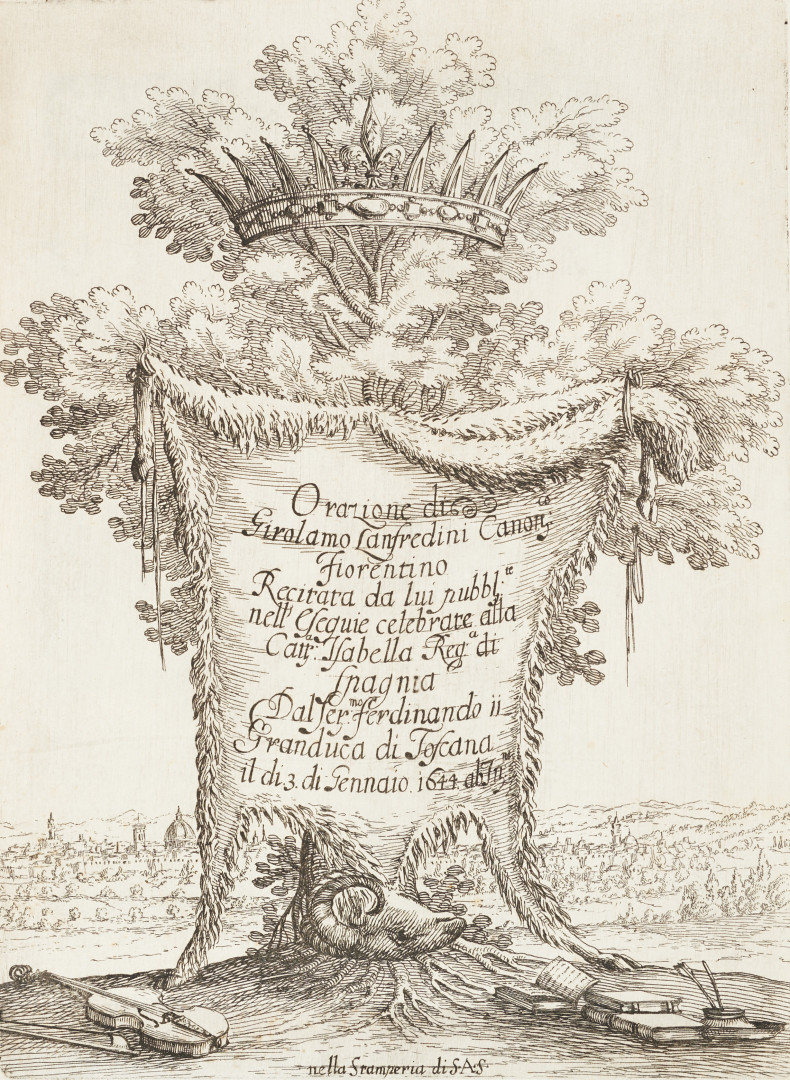 Orazione di
Girolamo Lanfredini Canon.co
Fiorentino
Recitata da lui pubbl.te
nell'Esequie celebrate alla
Catt.ca Isabella Reg.a di
Spagnia
Dal Ser.mo Ferdinando ii
Granduca di Toscana
il di 3. di Gennaio. 1644. ab In.ne
nella Stamperia di S.A.S.